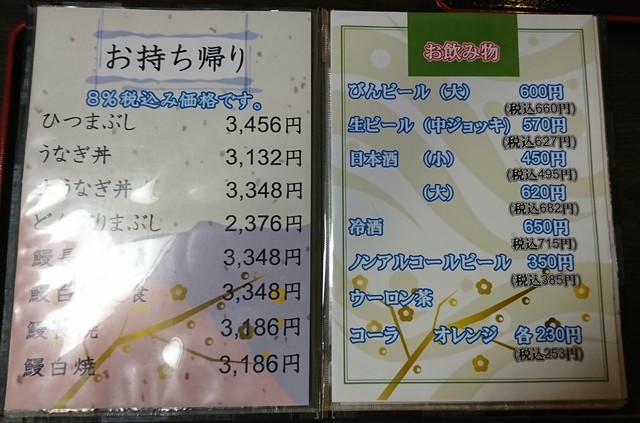 お持ち帰り
8%税込み価格です。
ひつまぶし 3,456円
うなぎ丼 3,132円
うなぎ丼 3,348円
まぶし 2,376円
鰻長 3,348円
鰻白 食 3,348円
鰻 焼 3,186円
鰻白焼 3,186円
お飲み物
びんビール (大) 600円
(税込660円)
生ビール (中ジョッキ) 570円
(税込627円)
日本酒 (小) 450円
(税込495円)
(大) 620円
(税込682円)
冷酒 650円
(税込715円)
ノンアルコールビール 350円
(税込385円)
ウーロン茶
コーラ オレンジ 各230円
(税込253円)